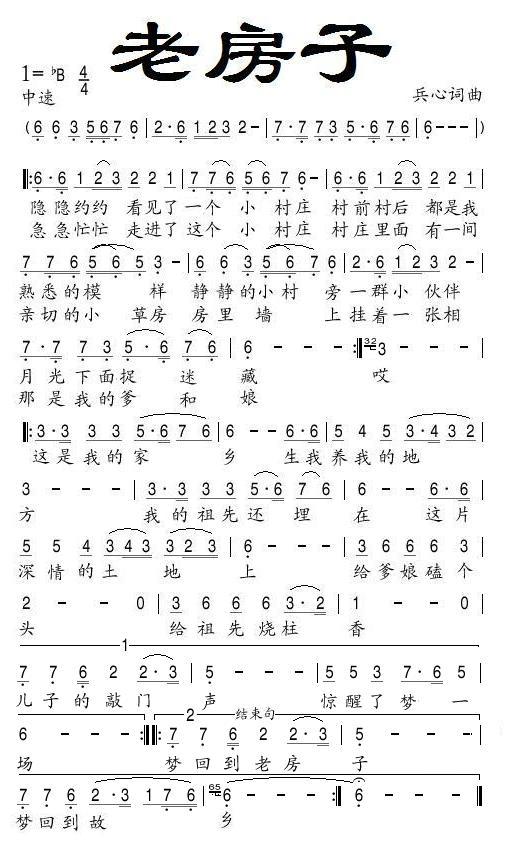 老房子
1= ♭B 4/4
中速 兵心词曲
( 6 6 3 5 6 7 6 | 2 · 6 1 2 3 2 – | 7 · 7 7 3 5 · 6 7 6 | 6 – – – )
‖: 6 · 6 1 2 3 2 2 1 | 7 7 6 5 6 7 6 – | 6 · 6 1 2 3 2 2 1 |
隐隐约约 看见了一个 小 村庄 村前村后 都是我
急急忙忙 走进了这个 小 村庄 村庄里面 有一间
7 7 6 5 6 5 3 – | 6 · 6 3 5 5 7 6 | 2 · 6 1 2 3 2 – |
熟悉的模 样 静静的小村 旁一群小 伙伴
亲切的小 草房 房里墙 上挂着一 张相
7 · 7 7 3 5 · 6 7 6 | 6 – – :‖ 32 3 – – |
月光下面捉 迷 藏 哎
那是我的爹 和 娘
‖: 3 · 3 3 3 5 · 6 7 6 | 6 – – 6 · 6 | 5 4 5 3 · 4 3 2 |
这是我的家 乡 生我养我的地
3 – – – | 3 · 3 3 3 5 · 6 7 6 | 6 – – 6 · 6 |
方 我的祖先还 埋 在 这片
5 5 4 3 4 3 3 2 3 | 6 – – – | 3 6 6 6 3 |
深情的土 地 上 给爹娘磕个
2 – – 0 | 3 6 6 6 3 · 2 | 1 – – 0 |
头 给祖先烧柱 香
1
7 7 6 2 2 · 3 | 5 – – – | 5 5 3 7 · 6 5 |
儿子的敲门 声 惊醒了梦一
2 结束句
6 – – – :‖: 7 7 6 2 2 · 3 | 5 – – – |
场 梦回到老房 子
7 7 6 2 · 3 1 7 6 | 65 6 – – – :‖ 6 – – – ‖
梦回到故 乡